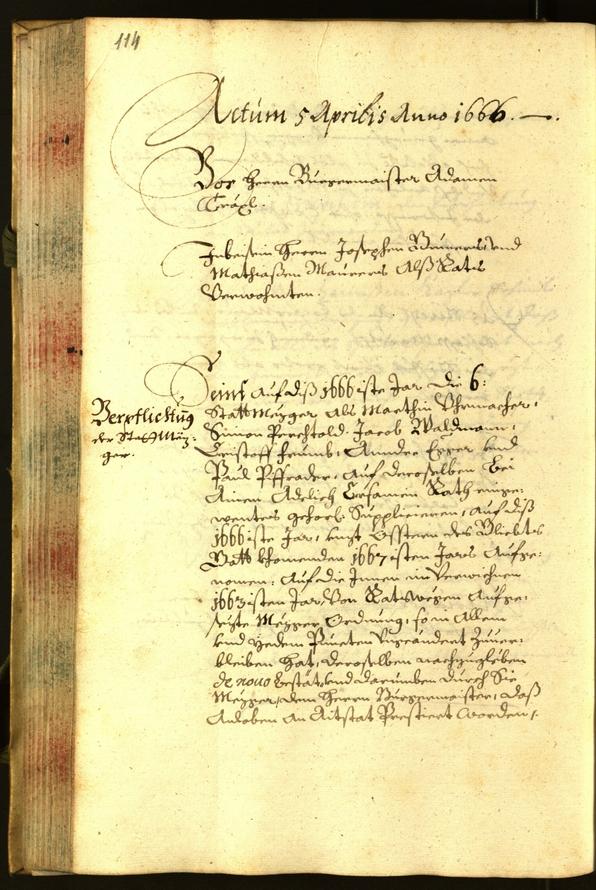 114
Actum 5 Aprilis Anno 1666.
Vor Herrn Burgermaister Adamen
Inbeisein Herrn Josephen Brunners und
Mathiaßen Maurers Alß Rats
Verwohnten.
Verpflichtung
der Stattmüz:
ger.
Seint Auf diß 1666iste Jar die 6:
Stattmezger Als Marthin Uhrmacher,
Simon Prechtold, Jacob Waldmann,
Cristoff Frumb, Anndre Egger und
Paul Pfffrader, Auf deroselben bei
Ainem Adelich Ersamen Rath einge:
wentes gehors. Supplicieren, Auf diß
1666iste Jar, unzt Osstern des
khomenden 1667isten Jars Aufge:
nomen, Auf die Innen im Verwichnen
1663isten Jar Von Ratswegen Aufge:
sezte Mezger Ordnung, so in Allem
und yedem Puncten Unveändert zuver:
bleiben hat, deroselben nachzugleben
de novo bestät, und darumben durch Sie
Mezger, dem Herrn Burgermaister, daß
Anloben An Aitstat Prestiert worden,